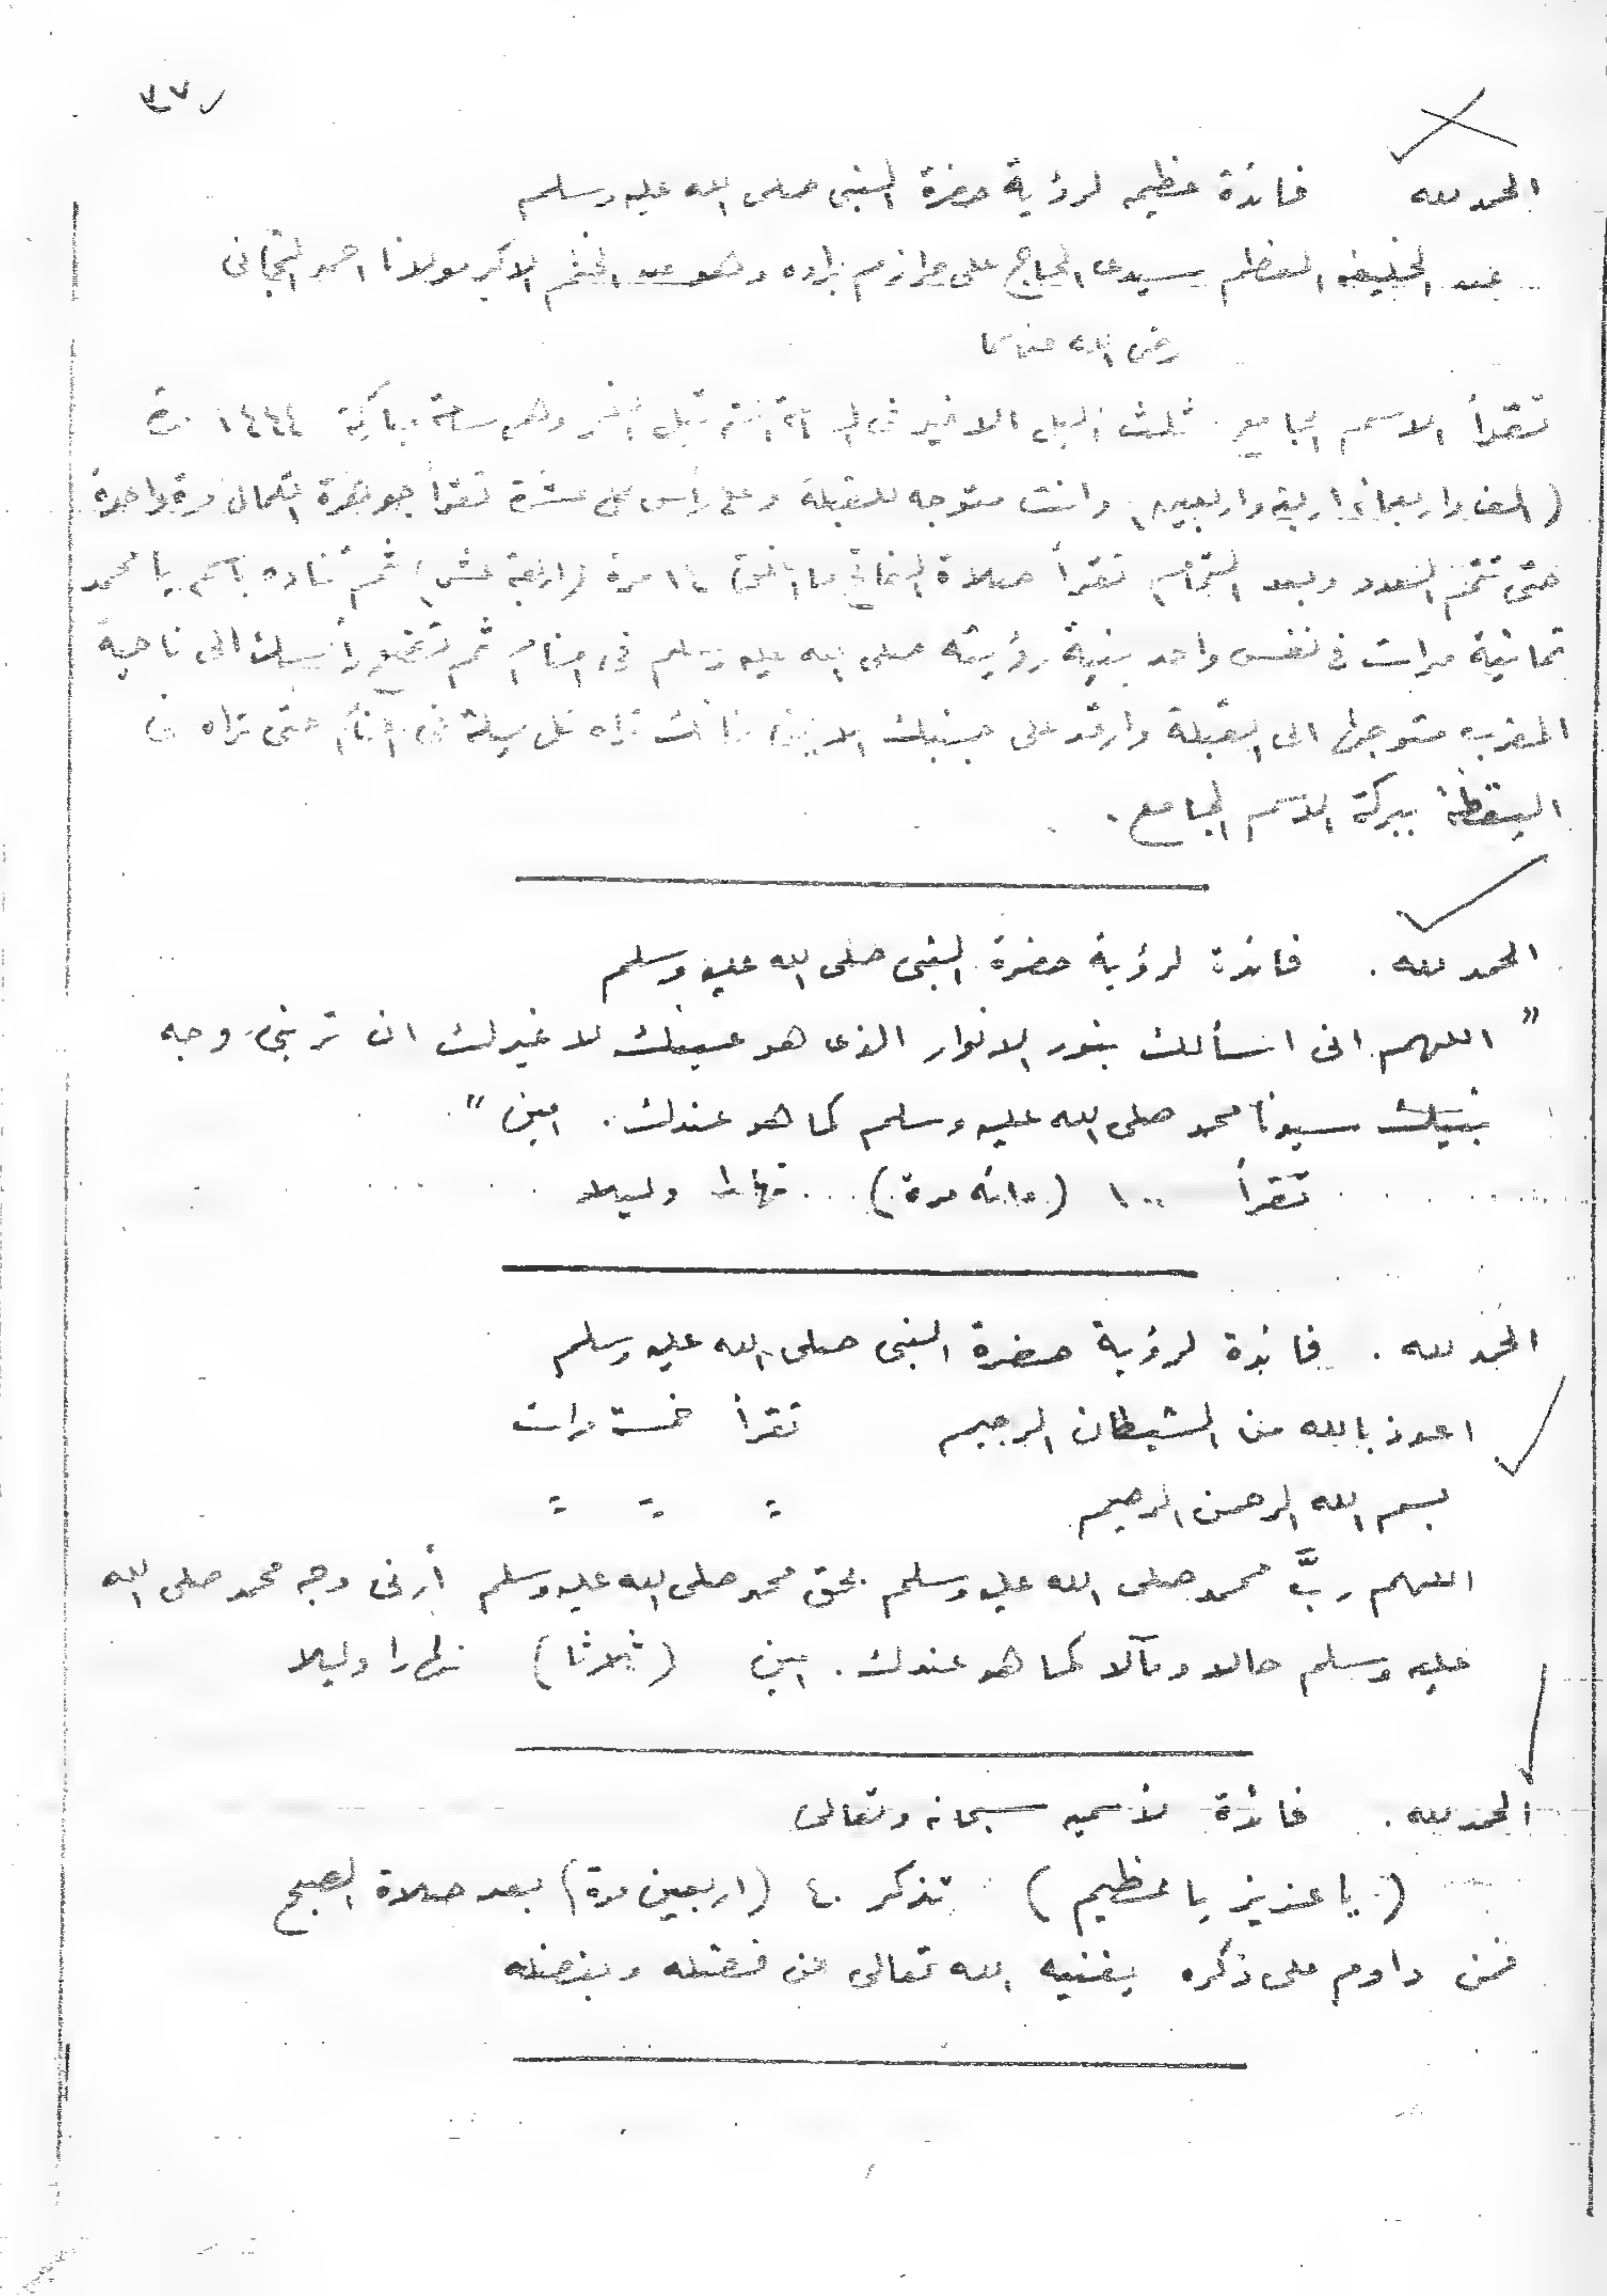 الحمد لله فائدة عظيمه لرؤية حضرة النبى صلى الله عليه وسلم
عند الخليفه المعظم سيدى الحاج على حرازم براده وهو عند الختم الاكبر مولانا احمد التجانى
رضى الله عنهما
تقرأ الاسم الجامع ثلث الليل الاخير وهى ساعة مباركة ١٤٤٤ مرة
(الف واربعمائه اربعة واربعين) وانت متوجه للقبلة وعلى رأس كل عشرة تقرأ جوهرة الكمال مرة واحدة
حتى تختم العدد وبعد التمام تقرأ صلاة الفاتح لما اغلق ١٤ مرة (اربعة عشر) ثم تناده باسم يا محمد
ثمانية مرات فى نفس واحد بنية رؤيته صلى الله عليه وسلم فى المنام ثم تضع رأسك الى ناحية
المغرب متوجها الى القبلة وارقد على جنبك الايمن فانك تراه كل ليلة فى المنام حتى تراه فى
اليقظة ببركة الاسم الجامع .
الحمد لله . فائدة لرؤية حضرة النبى صلى الله عليه وسلم
" اللهم انى اسألك بنور الانوار الذى هو عينك لا غيرك ان ترينى وجه
نبيك سيدنا محمد صلى الله عليه وسلم كما هو عندك . امين "
تقرأ ١٠٠ (مائه مرة) نهارا وليلا
الحمد لله . فائدة لرؤية حضرة النبى صلى الله عليه وسلم
اعوذ بالله من الشيطان الرجيم تقرأ خمسة مرات
بسم الله الرحمن الرحيم = = =
اللهم ربَّ محمد صلى الله عليه وسلم بحق محمد صلى الله عليه وسلم أرنى وجه محمد صلى الله
عليه وسلم حالا ومآلا كما هو عندك . امين (ثلاثا) نهارا وليلا
الحمد لله . فائدة لأسميه سبحانه وتعالى
(يا عزيز يا عظيم) تذكر ٤٠ (اربعين مرة) بعد صلاة الصبح
فمن داوم على ذكره يغنيه الله تعالى من فضله وبفضله